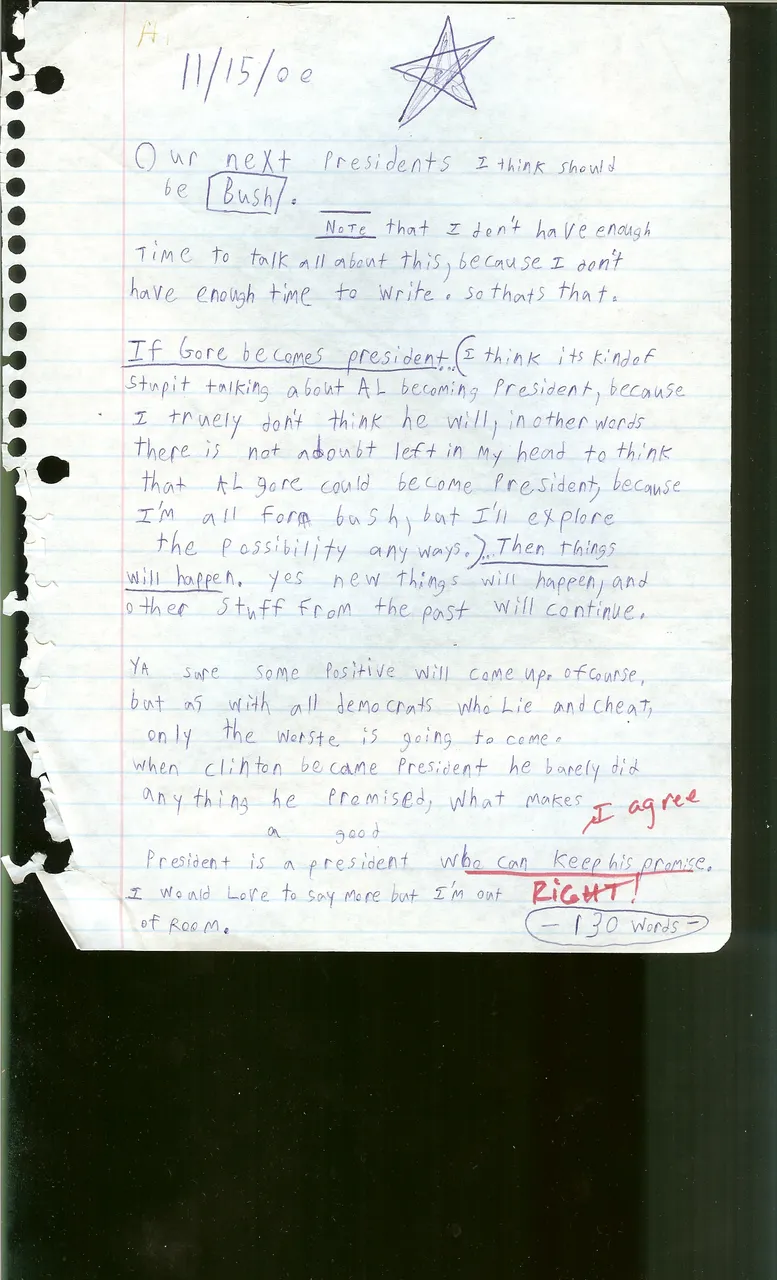 11/15/00
Our next Presidents I think should
be Bush.
Note that I don't have enough
Time to talk all about this, because I don't
have enough time to write. so thats that.
If Gore becomes president...(I think its kindof
Stupit talking about AL becoming President, because
I truely don't think he will, in other words
there is not a doubt left in my head to think
that AL gore could become President, because
I'm all for bush, but I'll explore
the possibility any ways.)...Then things
will happen. yes new things will happen, and
other stuff from the past will continue.
YA sure some Positive will come up. ofcourse,
but as with all democrats who Lie and cheat,
only the worste is going to come.
when clinton became President he barely did
any thing he Promised, what makes
I agree
a good
President is a president who can keep his promise.
I would Love to say more but I'm out
RIGHT!
of Room.
- 130 words -